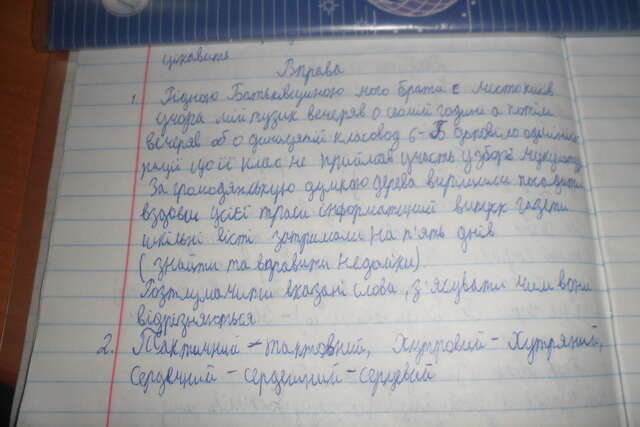 цікавить
Вправа
1. Рідною Батьківщиною мого брата є місто Київ
учора мій пузик вечеряв о сьомій годині а потім
вечеряв об о динадцятій класовод 6-Б доповіла адміністрації
що її клас не прийняв участь у зборі макулатури
За громодянською думкою дерева вирішили посадити
вздовж усієї траси інформатний випуск газети
шкільні вісті затримали на п'ять днів
(знайти та вправити недоліки).
Розтлумачити вказані слова, з'ясувати чим вони
відрізняються
2. Тактичний - тактовний, Хутровий - Хутряний,
Сердечний - сердешний - серцевий